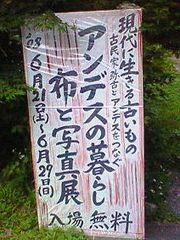 現代に生きる古いもの
古民家 とアンデスをつなぐ
アンデスの暮らし
布と写真展
'08 6月21(土)〜6月29(日)
入場無料